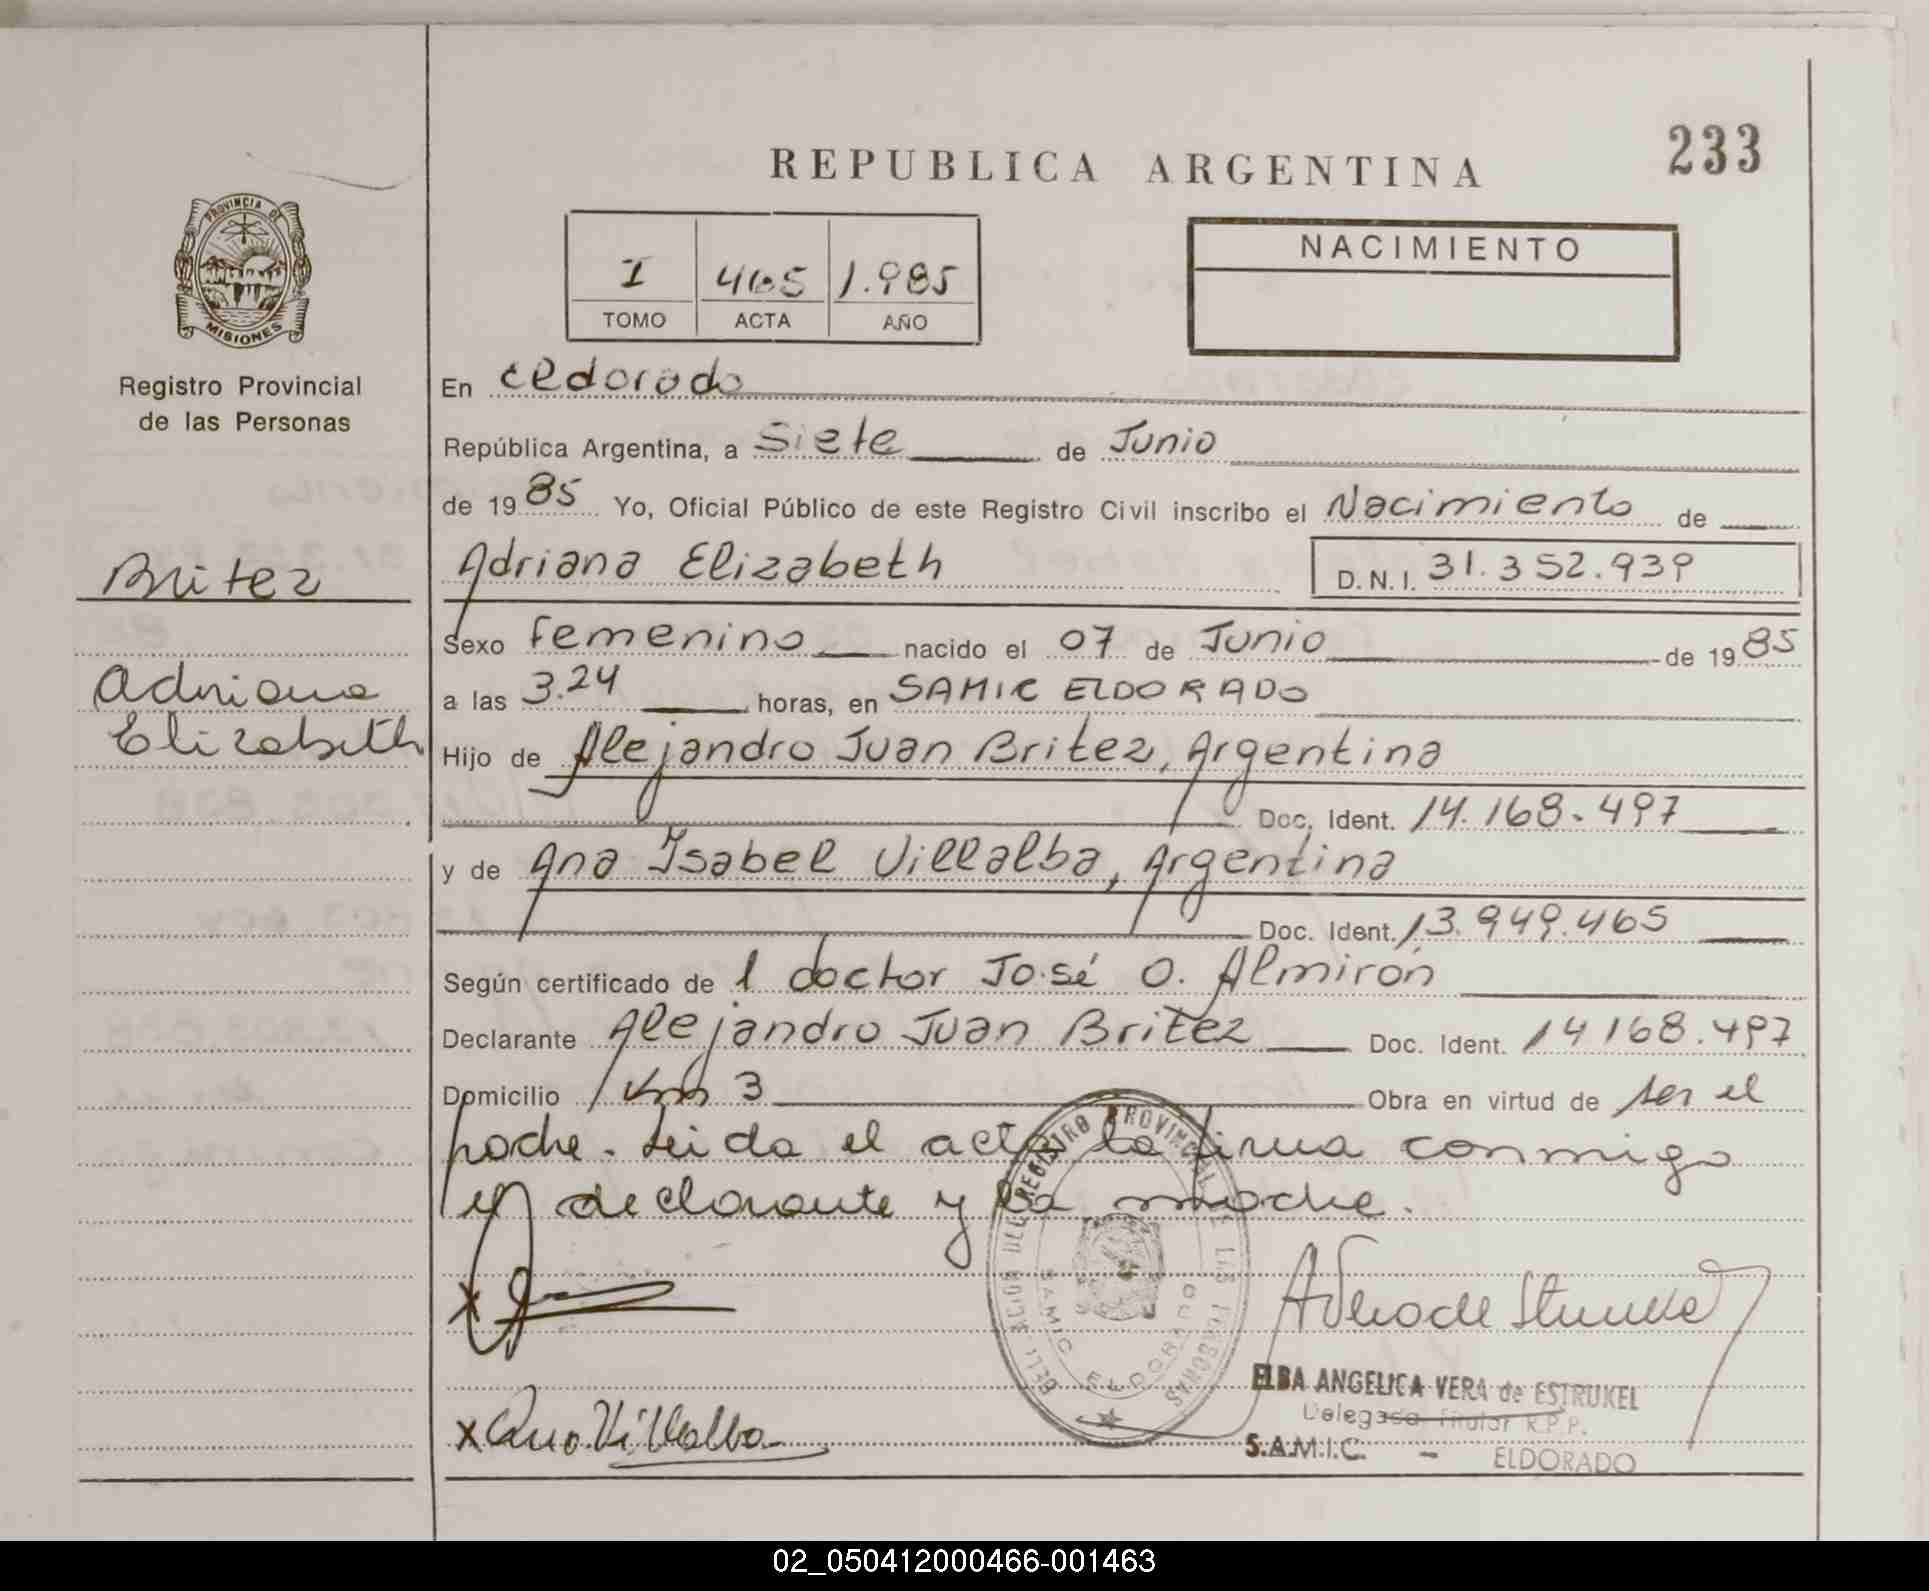 233
REPUBLICA ARGENTINA
PROVINCIA DE
MISIONES
Registro Provincial
de las Personas
I 465 1.985
TOMO ACTA AÑO
NACIMIENTO
En Eldorado
República Argentina, a Siete de Junio
de 1985 Yo, Oficial Público de este Registro Civil inscribo el Nacimiento de
Britez
Adriana Elizabeth D.N.I. 31.352.939
Sexo femenino nacido el 07 de Junio de 1985
Adriana
a las 3.24 horas, en SAMIC ELDORADO
Elizabeth
Hijo de Alejandro Juan Britez, Argentina
Doc. Ident. 14.168.497
y de Ana Isabel Villalba, Argentina
Doc. Ident. 13.949.465
Según certificado de l doctor José O. Almirón
Declarante Alejandro Juan Britez Doc. Ident. 14168.497
Domicilio Km 3 Obra en virtud de ser el
padre. Leida el acta la firma conmigo
el declarante y la madre.
REGISTRO PROVINCIAL DE LAS PERSONAS
SAMIC ELDORADO
x
ELBA ANGELICA VERA de ESTRUKEL
Delegada Titular R.P.P.
x Ana Villalba
S.A.M.I.C. - ELDORADO
02_050412000466-001463